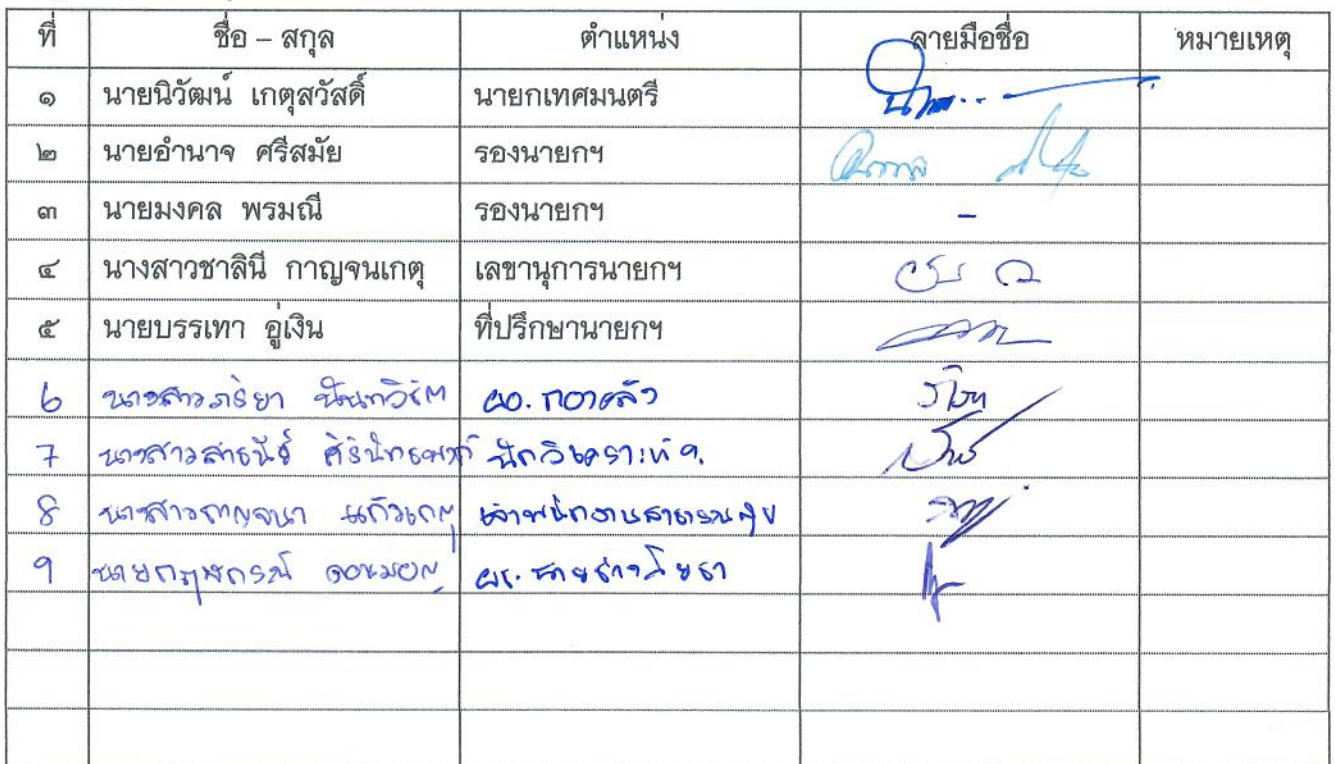 ที่ ชื่อ – สกุล ตำแหน่ง ลายมือชื่อ หมายเหตุ
๑ นายนิวัฒน์ เกตุสวัสดิ์ นายกเทศมนตรี
๒ นายอำนาจ ศรีสมัย รองนายกฯ
๓ นายมงคล พรมณี รองนายกฯ –
๔ นางสาวชาลินี กาญจนเกตุ เลขานุการนายกฯ
๕ นายบรรเทา อู่เงิน ที่ปรึกษานายกฯ
6 นางสาวภริยา ผอ. กองคลัง
7 นางสาว นักวิเคราะห์ฯ
8 นางสาวกาญจนา แก้วเกตุ เจ้าพนักงานสาธารณสุข
9 นาย นายช่างโยธา